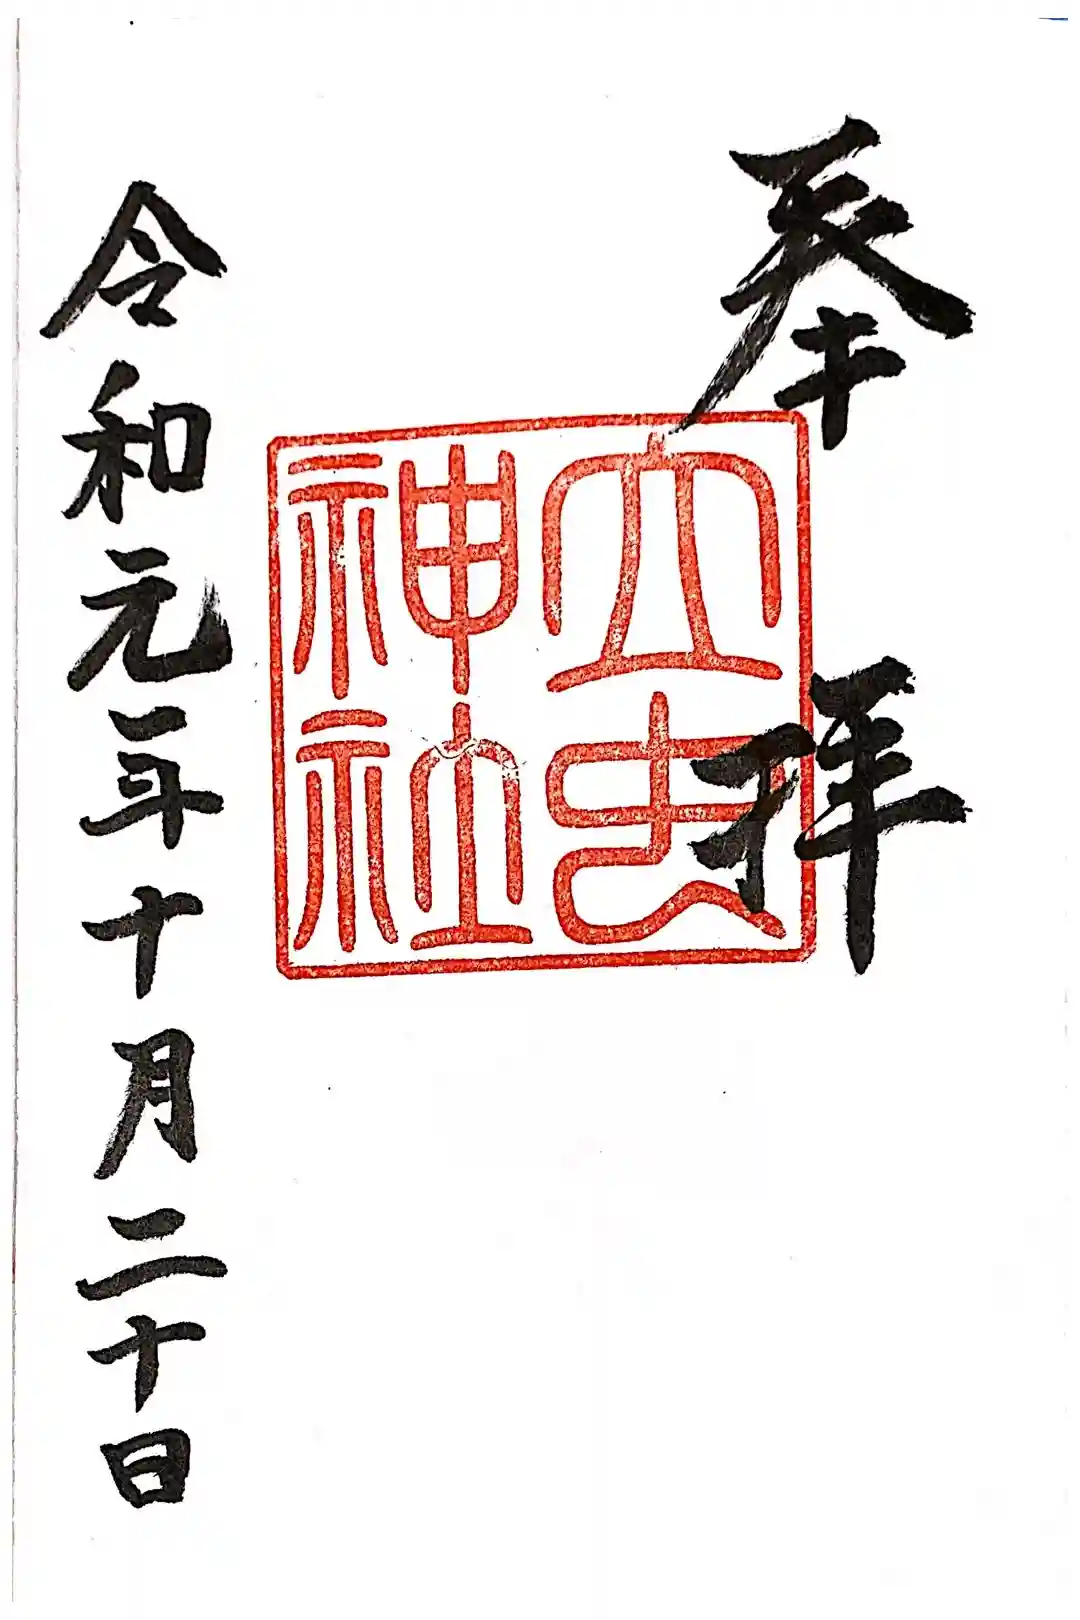 奉拝
立虫
神社
令和元年十月二十日